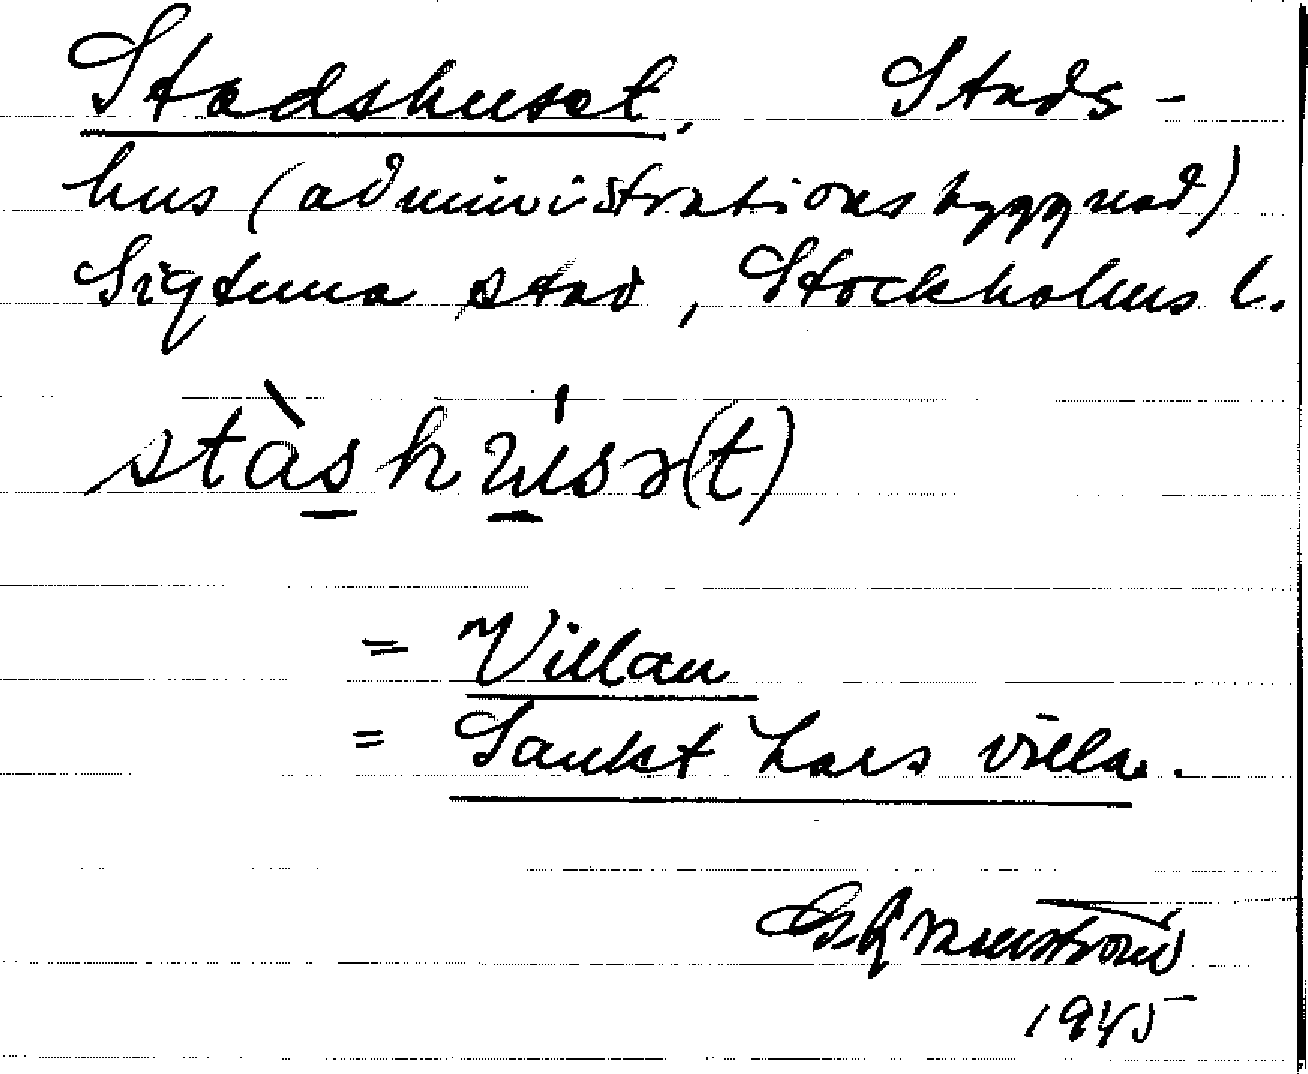 Stadshuset. Stads-
hus (administrationsbyggnad)
Sigtuna stad, Stockholms l.
stàskúsə(t)
= Villan
= Sankt Lars villa.
1945